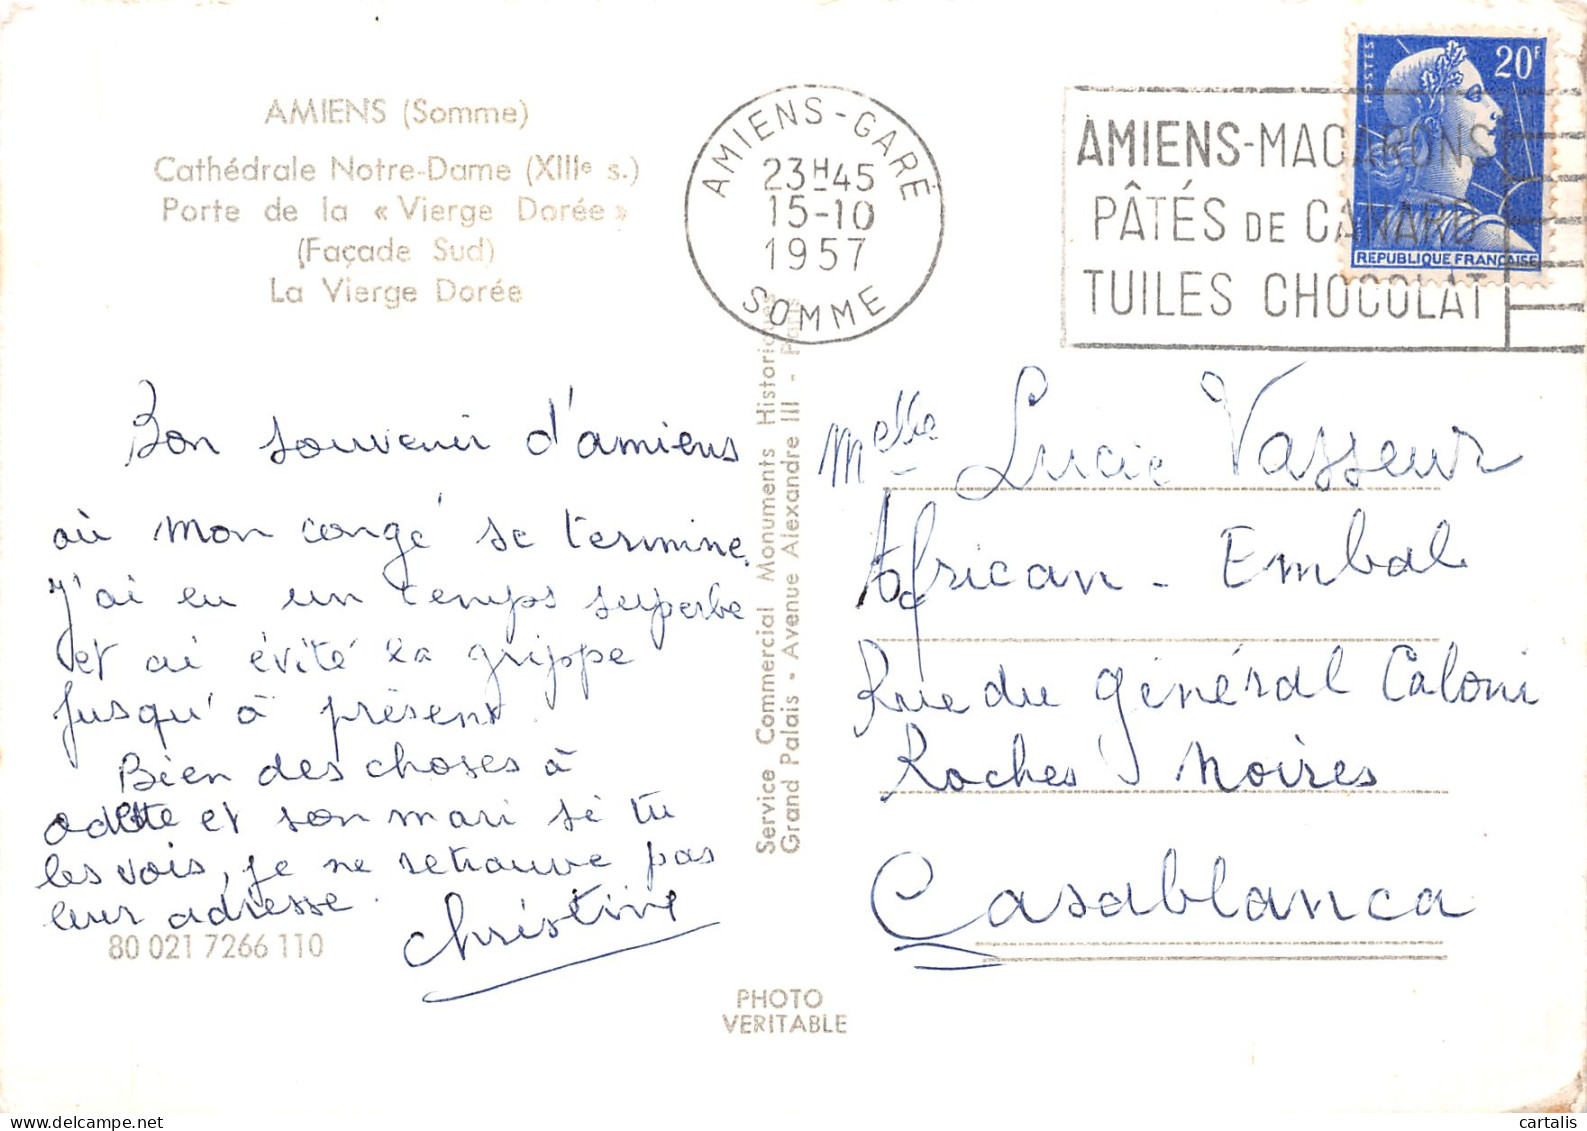 AMIENS (Somme)
Cathédrale Notre-Dame (XIIIe s.)
Porte de la « Vierge Dorée »
(Façade Sud)
La Vierge Dorée
AMIENS-GARE
23H45
15-10
1957
SOMME
AMIENS-MACARONS
PÂTÉS DE CANARD
TUILES CHOCOLAT
POSTES
20F
REPUBLIQUE FRANÇAISE
Bon souvenir d'amiens
où mon congé se termine.
J'ai eu un temps superbe
et ai évité la grippe
jusqu'à présent.
Bien des choses à
odette et son mari si tu
les vois, je ne retrouve pas
leur adresse.
Christine
80 021 7266 110
Service Commercial Monuments Historiques
Grand Palais - Avenue Alexandre III - Paris
PHOTO
VERITABLE
Melle Lucie Vasseur
African - Embal
Rue du général Caloni
Roches Noires
Casablanca
cartalis